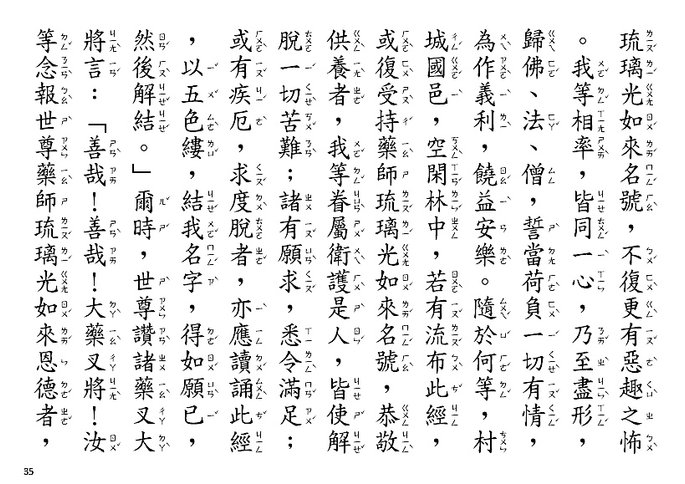 琉璃光如來名號，不復更有惡趣之怖
。我等相率，皆同一心，乃至盡形，
歸佛、法、僧，誓當荷負一切有情，
為作義利，饒益安樂。隨於何等，村
城國邑，空閑林中，若有流布此經，
或復受持藥師琉璃光如來名號，恭敬
供養者，我等眷屬衛護是人，皆使解
脫一切苦難；諸有願求，悉令滿足；
或有疾厄，求度脫者，亦應讀誦此經
，以五色縷，結我名字，得如願已，
然後解結。」爾時，世尊讚諸藥叉大
將言：「善哉！善哉！大藥叉將！汝
等念報世尊藥師琉璃光如來恩德者，
35